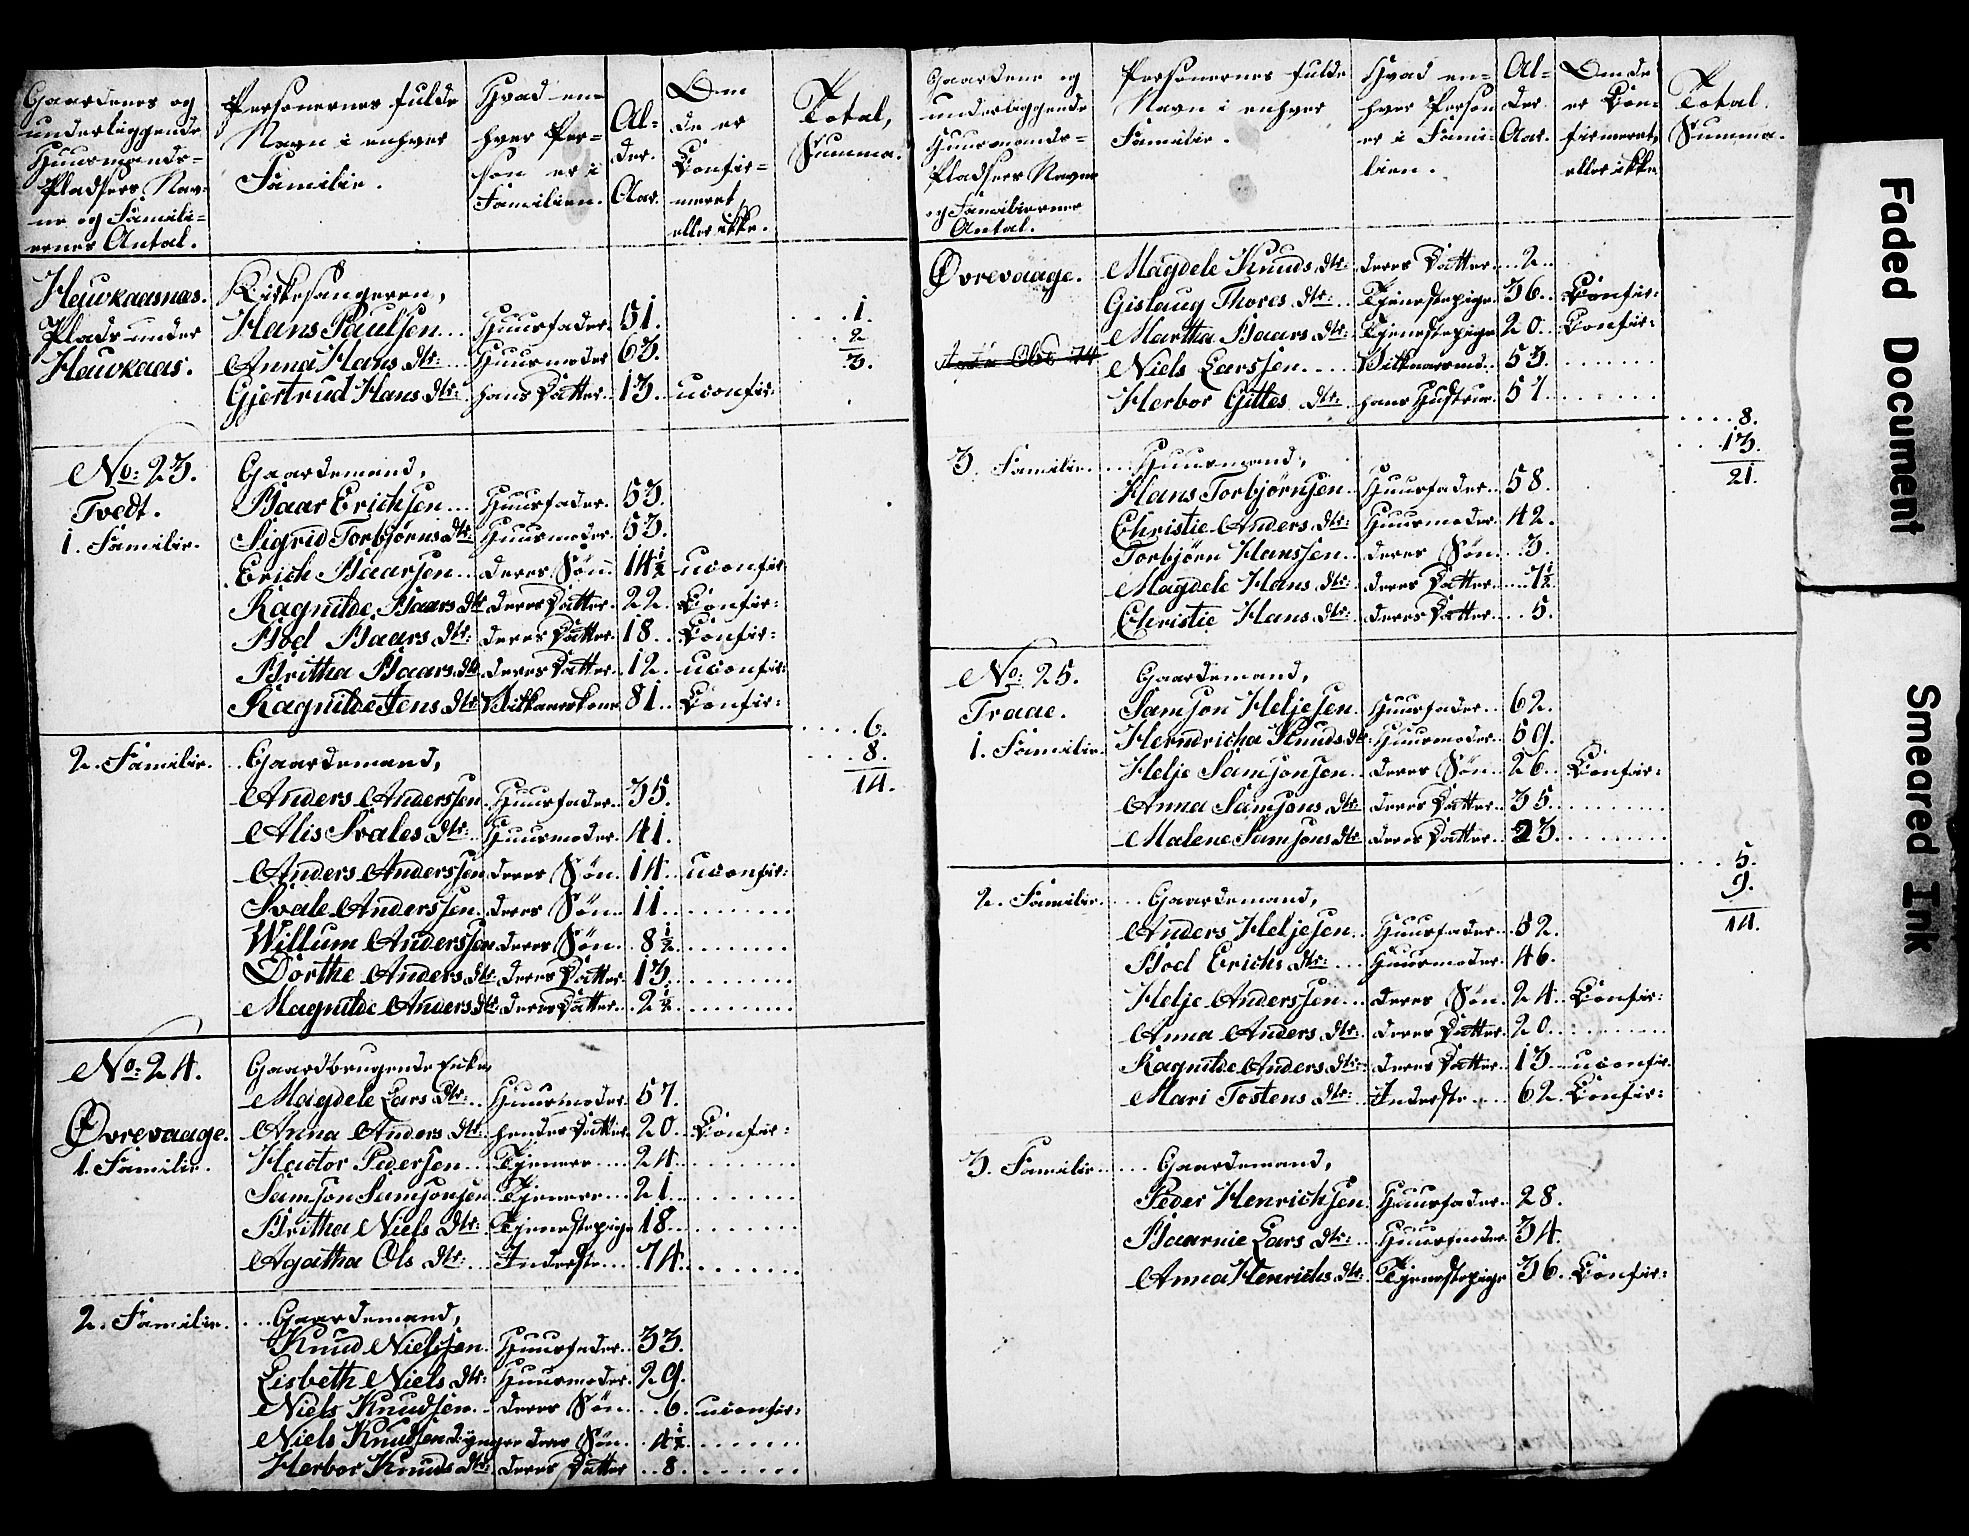 Gaardenes og
underliggende
Huusmands-
Pladsers Nav-
ne og Famili-
ernes Antal.
Personernes fulde
Navn i enhver
Familie.
Hvad en-
hver Per-
son er i
Familien.
Al-
der.
Aar.
Om
de er
Confir-
meret
eller ikke.
Total,
Summa.
Hawkaasnas.
Plads under
Hawkaas.
Kirkesangeren,
Hans Paulsen.... Huusfader. 51.
Anna Hans Dtr: Huusmoder 63.
Gjertrud Hans Dtr: hans Datter. 13. uconfir:
....1.
..2
3.
No: 23.
Tvedt.
1. Familie.
Gaardemand,
Baar Erichsen.... Huusfader. 53.
Sigrid Torbjørns Dtr: Huusmoder 53.
Erich Baarsen.... deres Søn. 14½ uconfir
Ragnilde Baars Dtr deres Datter. 22. Confir:
Boel Baars Dtr: deres Datter. 18. Confir:
Britha Baars Dtr deres Datter. 12. uconfir:
Ragnilde Jens Dtr: Vilkaarskone 81. Confir:
....6.
2. Familie. .. Gaardemand,
....8.
14.
Anders Anderssen. Huusfader. 35.
Alis Svales Dtr: Huusmoder. 41.
Anders Anderssen deres Søn. 14. uconfir:
Svale Anderssen. deres Søn. 11. ........
Willum Anderssen deres Søn. 8½ ........
Dorthe Anders Dtr. deres Datter. 13. ........
Magnilde Anders Dtr. deres Datter. 2½ ........
No: 24.
Øvrevaage.
1. Familie.
Gaardbrugende Enke,
Magdele Lars Dtr: Huusmoder 57.
Anna Anders Dtr: hendes Datter 20. Confir:
Hactor Pedersen.... Tjener.... 24. ........
Samson Samsonsen. Tjener.... 21. ........
Britha Niels Dtr: Tjenestepige 18. ........
Agatha Ols Dtr: Inderste.... 74. ........
2. Familie. .... Gaardemand,
Knud Nielssen. Huusfader. 33.
Lisbeth Niels Dtr: Huusmoder. 29.
Niels Knudsen.. deres Søn. ..6. uconfir:
Niels Knudsen d: yngre deres Søn. .4½ ........
Herbor Knuds Dtr: deres Datter ..8. ........
Gaardene og
underliggende
Huusmands-
Pladsers Navne
og Familiernes
Antal.
Personernes fulde
Navn i enhver
Familie.
Hvad en-
hver Person
er i Fami-
lien.
Al-
der.
Aar.
Om de
er Con-
firmeret,
eller ikke
Total.
Summa.
Øvrevaage.
Magdele Knuds Dtr: deres Datter. ..2..
Gislaug Thores Dtr: .. Tjenestepige 36. Confir:
Martha Baars Dtr: Tjenestepige 20. Confir:
Niels Larssen.... Vilkaarsmd. 53. .......
Herbor Gittes Dtr: hans Hustrue. 57. .......
....8.
3. Familie. ... Huusmand,
...13.
21.
Hans Torbjørnsen. Huusfader. 58.
Christie Anders Dtr: Huusmoder. 42.
Torbjörn Hanssen. deres Søn. .3.
Magdele Hans Dtr: deres Datter. ..7½
Christie Hans Dtr: deres Datter. ..5.
No: 25.
Traae.
1. Familie.
Gaardemand,
Samson Heljesen. Huusfader. 62.
Herndricha Knuds Dtr: Huusmoder. 59.
Helje Samsonsen.. deres Søn. 26. Confir:
Anna Samsons Dtr: deres Datter. 35. ........
Malene Samsons Dtr deres Datter. 23. ........
.... 5.
2. Familie. .... Gaardemand,
9.
14.
Anders Heljesen.. Huusfader. 52.
Boel Erichs Dtr: .. Huusmoder. 46.
Helje Anderssen... deres Søn. 24. Confir:
Anna Anders Dtr: deres Datter. 20. ........
Ragnilde Anders Dtr: deres Datter. 13. uconfir.
Mari Tostens Dtr: Inderste.... 62. Confir:
3. Familie. .... Gaardemand,
Peder Henrichsen. Huusfader. 28.
Baarnie Lars Dtr: .. Huusmoder. 34.
Anna Henrichs Dtr: Tjenestepige 36. Confir:
Faded Document
Smeared Ink